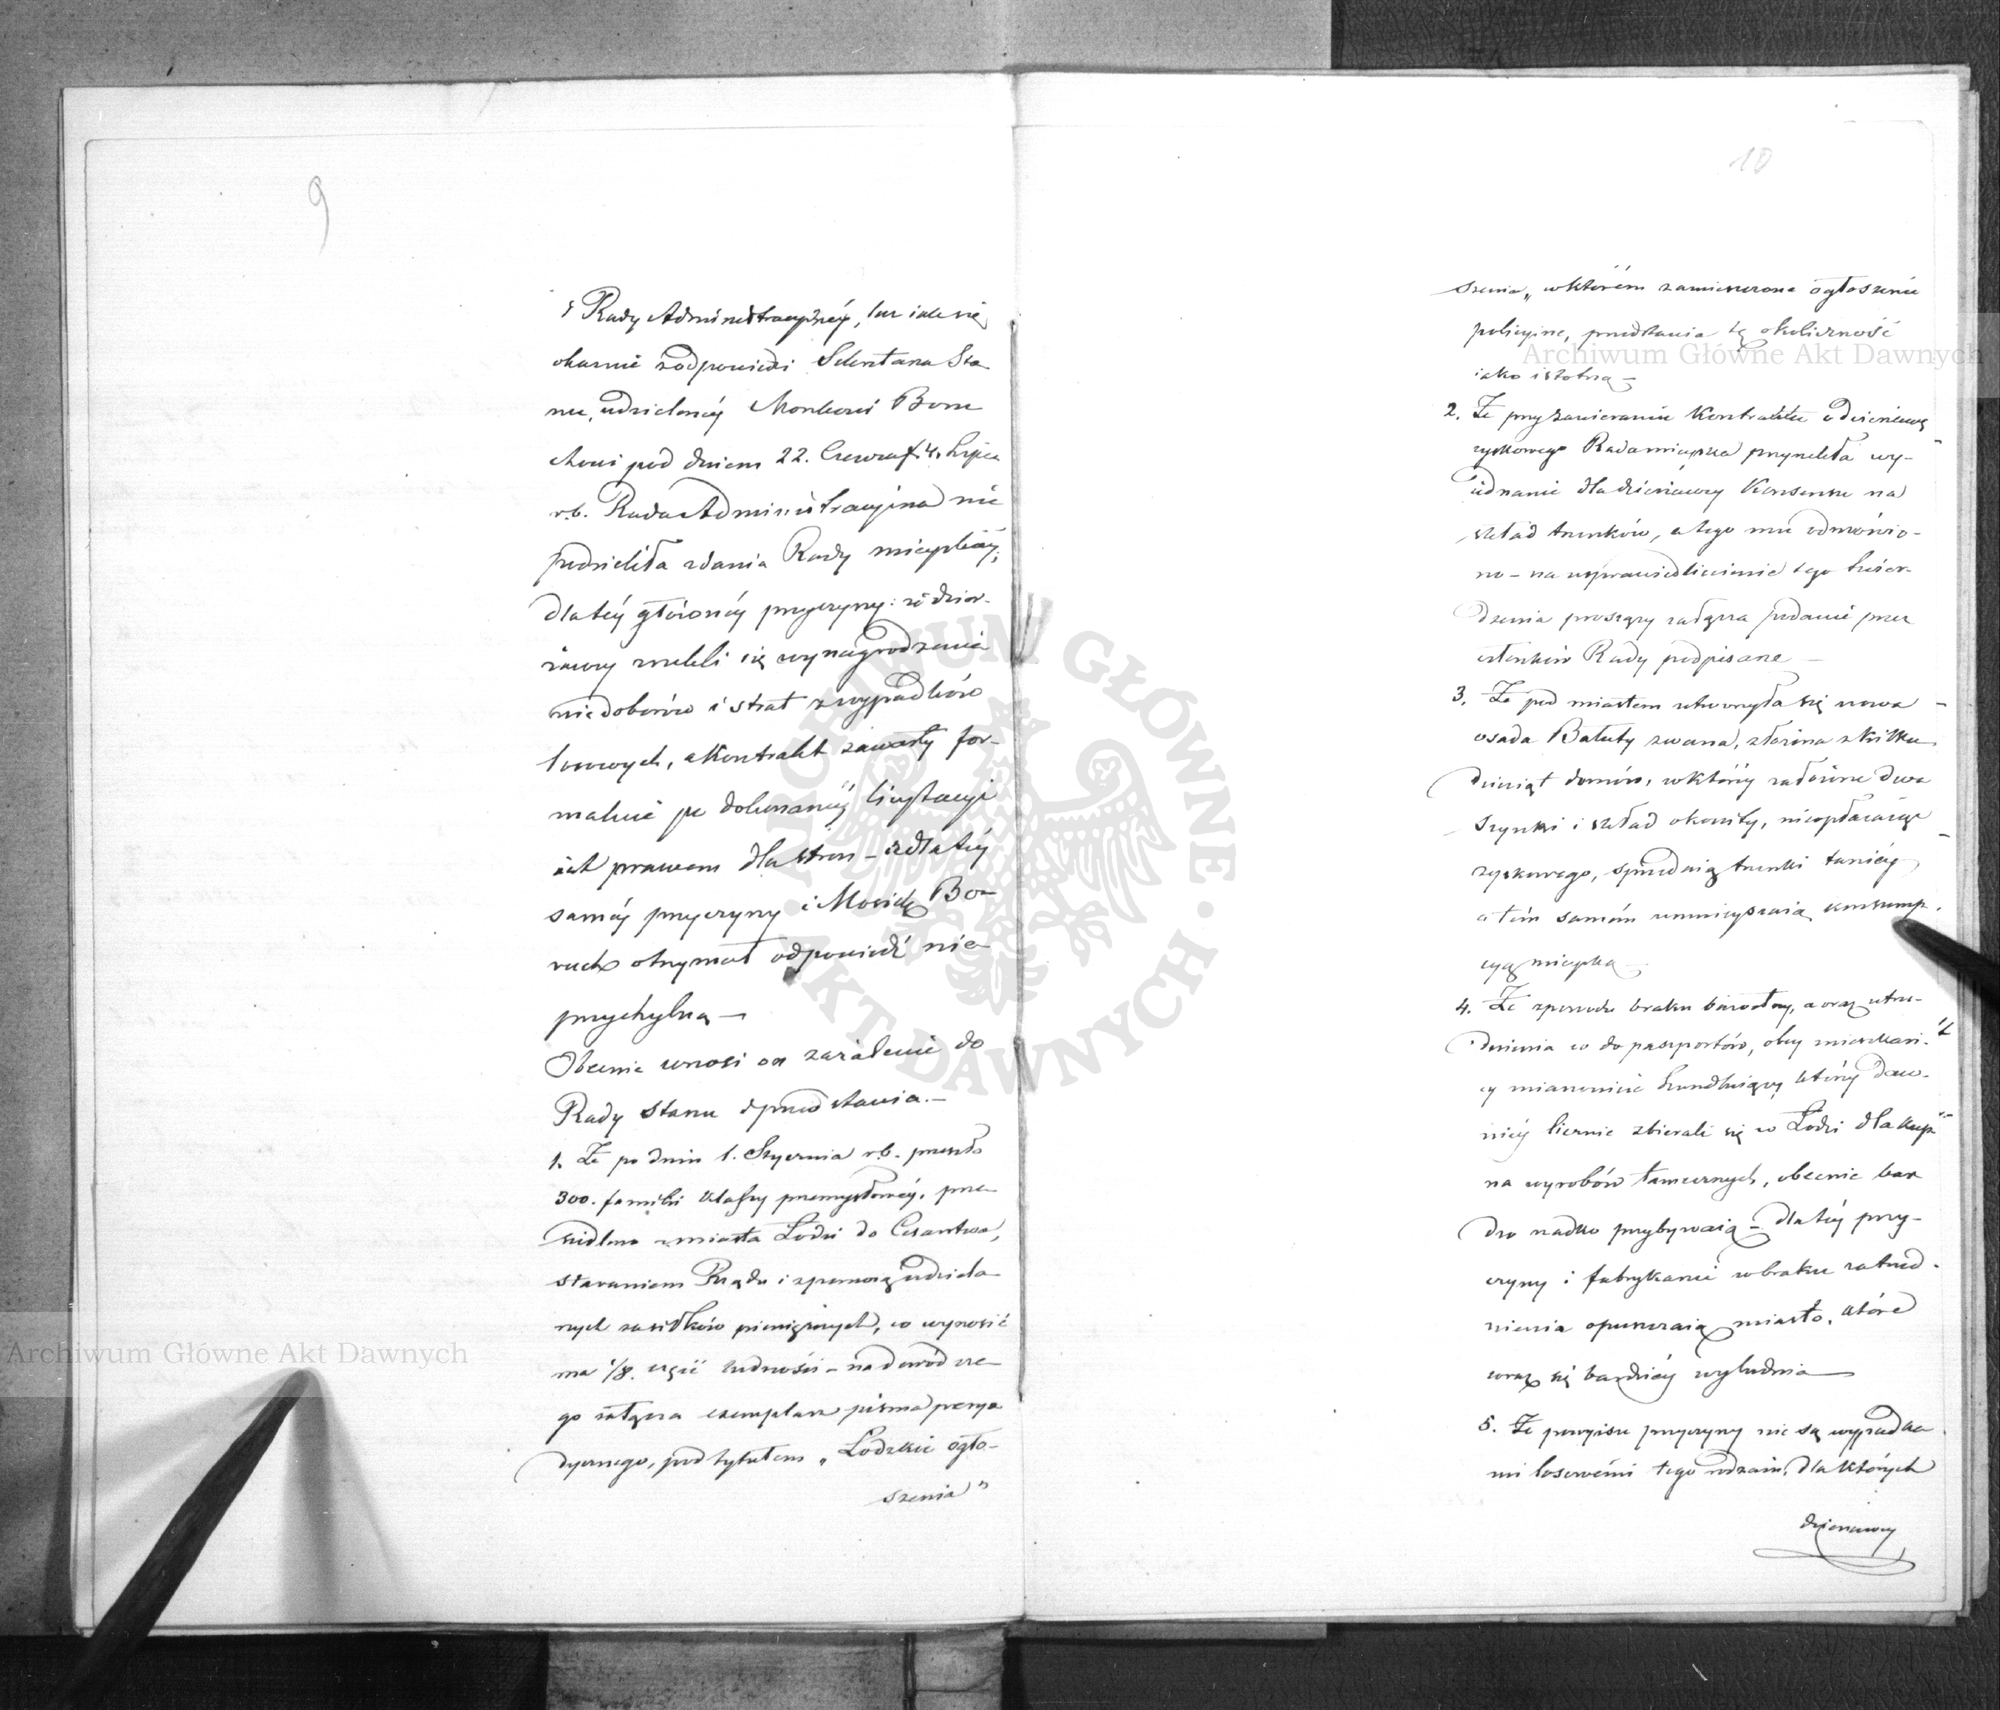 9
Rady Administracyjnej, lecz iak się
okazuie z odpowiedzi Sekretarza Sta
nu, udzieloney Moszkowi Boru
chowi pod dniem 22. Czerwca/4. Lipca
r.b. Rada Administracyjna nie
podzieliła zdania Rady mieyskiey,
dla tey głównéy przyczyny: że dzier-
żawcy zrzekli się wynagrodzenia
niedoborów i strat z wypadków
losowych, a kontrakt zawarty for-
malnie po dokonanéy licytacyi
iest prawem dla stron – z dla téy
saméy przyczyny i Mosiek Bo-
ruch otrzymał odpowiedź nie
przychylną —
Obecnie wnosi on zażalenie do
Rady Stanu i przedstawia. —
1. Że po dniu 1. Stycznia r.b. przeszło
300. familii klassy przemysłowéy, prze
siedlono z miasta Łodzi do Cesarstwa,
staraniem Rządu i z pomocą udziela
nych zasiłków pieniężnych, co wynosić
ma 1/8. część ludności – na dowód cze-
go załącza exemplarz pisma peryo
dycznego, pod tytułem „Łódzkie ogło-
szenia"
10
szenia„ w którém zamieszczone ogłoszenie
policyine, przedstawia tę okoliczność
iako istotną —
2. Że przy zawieraniu Kontraktu o dzierżawę
zyskowego Rada mieyska przyrzekła wy-
iednanie dla dzierżawcy Konsensu na
skład trunków, a tego mu odmówio-
no – na usprawiedliwienie tego twier-
dzenia proszący załącza podanie przez
członków Rady podpisane —
3. Że pod miastem utworzyła się nowa
osada Bałuty zwana, złożona z kilku
dziesiąt domów, w któréy założone dwa
Szynki i skład okowity, nieopłacaiąc
zyskowego, sprzedaią trunki taniéy
a tém samém zmnieyszaią konsump-
cyą mieyską —
4. Że z powodu braku bawełny, a oraz utru-
dnienia co do paszportów, obcy mieszkań-
cy mianowicie handluiący, którzy daw-
niéy licznie zbierali się w Łodzi dla kup-
na wyrobów tamecznych, obecnie bar
dzo rzadko przybywaią – dla téy przy-
czyny i fabrykanci w braku zatrud-
nienia opuszczaią miasto, które
coraz się bardziéy wyludnia —
5. Że powyższe przyczyny nie są wypadka
mi losowémi tego rodzaiu, dla których
dzierżawcy
Archiwum Główne Akt Dawnych
Archiwum Główne Akt Dawnych
ARCHIWUM GŁÓWNE · AKT DAWNYCH ·